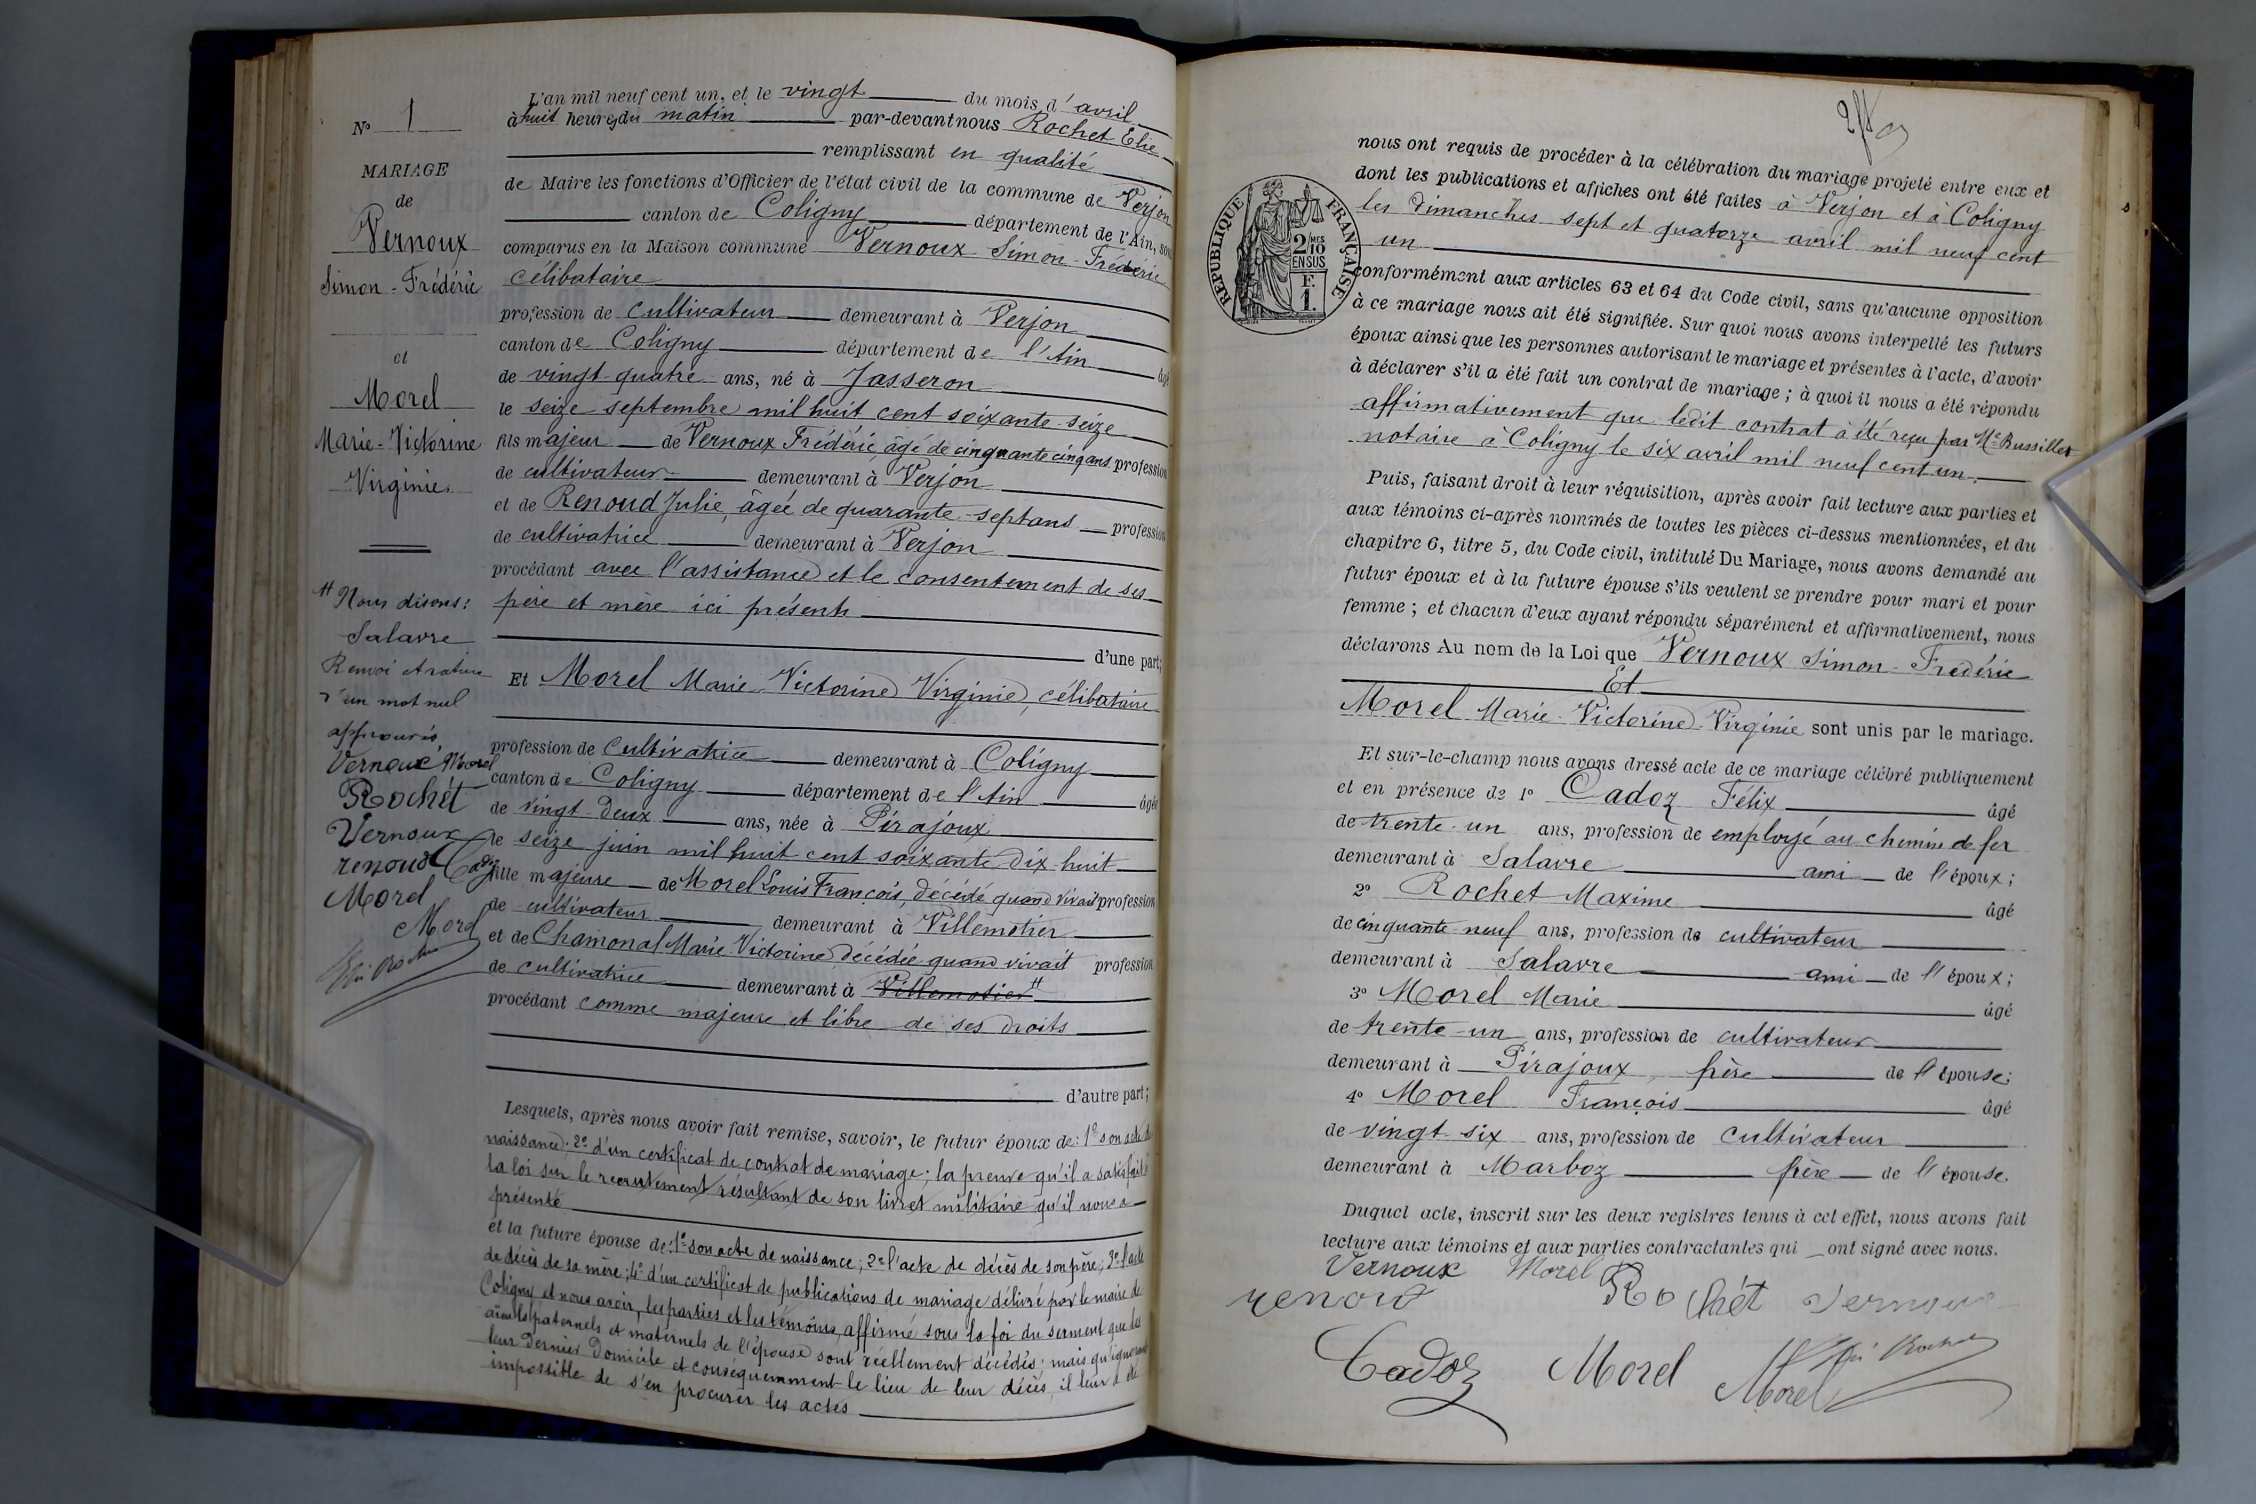 N° 1
MARIAGE
de
Vernoux
Simon-Frédéric
et
Morel
Marie-Victorine
Virginie.
# Nous disons :
Salavre
Renvoi et rature
d'un mot nul
approuvés
Vernoux Morel
Rochet
Vernoux
renoud Cadoz
Morel
Morel
Elie Rochet
L'an mil neuf cent un, et le vingt du mois d'avril
à huit heures du matin par-devant nous Rochet Elie
remplissant en qualité
de Maire les fonctions d'Officier de l'état civil de la commune de Verjon
canton de Coligny département de l'Ain, sont
comparus en la Maison commune Vernoux Simon-Frédéric
célibataire
profession de cultivateur demeurant à Verjon
canton de Coligny département de l'Ain âgé
de vingt-quatre ans, né à Jasseron
le seize septembre mil huit cent soixante-seize
fils majeur de Vernoux Frédéric, âgé de cinquante cinq ans profession
de cultivateur demeurant à Verjon
et de Renoud Julie, âgée de quarante-sept ans profession
de cultivatrice demeurant à Verjon
procédant avec l'assistance et le consentement de ses
père et mère ici présents
d'une part;
Et Morel Marie Victorine Virginie, célibataire
profession de cultivatrice demeurant à Coligny
canton de Coligny département de l'Ain âgée
de vingt-deux ans, née à Pirajoux
le seize juin mil huit cent soixante dix-huit
fille majeure de Morel Louis François, décédé quand vivait profession
de cultivateur demeurant à Villemotier
et de Chamonal Marie Victorine décédée quand vivait profession
de cultivatrice demeurant à Villemotier #
procédant comme majeure et libre de ses droits
d'autre part;
Lesquels, après nous avoir fait remise, savoir, le futur époux de : 1° son acte de
naissance. 2° d'un certificat de contrat de mariage ; la preuve qu'il a satisfait à
la loi sur le recrutement résultant de son livret militaire qu'il nous a
présenté
et la future épouse de : 1° son acte de naissance ; 2° l'acte de décès de son père ; 3° l'acte
de décès de sa mère ; 4° d'un certificat de publications de mariage délivré par le maire de
Coligny et nous avoir, les parties et les témoins, affirmé sous la foi du serment que les
aïeuls paternels et maternels de l'épouse sont réellement décédés ; mais qu'ignorant
leur dernier domicile et conséquemment le lieu de leur décès, il leur a été
impossible de s'en procurer les actes
nous ont requis de procéder à la célébration du mariage projeté entre eux et
dont les publications et affiches ont été faites à Verjon et à Coligny
les dimanches sept et quatorze avril mil neuf cent
un
RÉPUBLIQUE FRANÇAISE
2 MES
10
EN SUS
F.
1.
conformément aux articles 63 et 64 du Code civil, sans qu'aucune opposition
à ce mariage nous ait été signifiée. Sur quoi nous avons interpellé les futurs
époux ainsi que les personnes autorisant le mariage et présentes à l'acte, d'avoir
à déclarer s'il a été fait un contrat de mariage ; à quoi il nous a été répondu
affirmativement que ledit contrat à été reçu par Me Bussillet
notaire à Coligny le six avril mil neuf cent un.
Puis, faisant droit à leur réquisition, après avoir fait lecture aux parties et
aux témoins ci-après nommés de toutes les pièces ci-dessus mentionnées, et du
chapitre 6, titre 5, du Code civil, intitulé Du Mariage, nous avons demandé au
futur époux et à la future épouse s'ils veulent se prendre pour mari et pour
femme ; et chacun d'eux ayant répondu séparément et affirmativement, nous
déclarons Au nom de la Loi que Vernoux Simon-Frédéric
Et
Morel Marie-Victorine-Virginie sont unis par le mariage.
Et sur-le-champ nous avons dressé acte de ce mariage célébré publiquement
et en présence de 1° Cadoz Félix âgé
de trente-un ans, profession de employé au chemin de fer
demeurant à Salavre ami de l'époux ;
2° Rochet Maxime âgé
de cinquante-neuf ans, profession de cultivateur
demeurant à Salavre ami de l'époux ;
3° Morel Marie âgé
de trente-un ans, profession de cultivateur
demeurant à Pirajoux, frère de l'épouse ;
4° Morel François âgé
de vingt-six ans, profession de cultivateur
demeurant à Marboz frère de l'épouse.
Duquel acte, inscrit sur les deux registres tenus à cet effet, nous avons fait
lecture aux témoins et aux parties contractantes qui ont signé avec nous.
Vernoux Morel
renoud Rochet Vernoux
Cadoz Morel Morel Elie Rochet